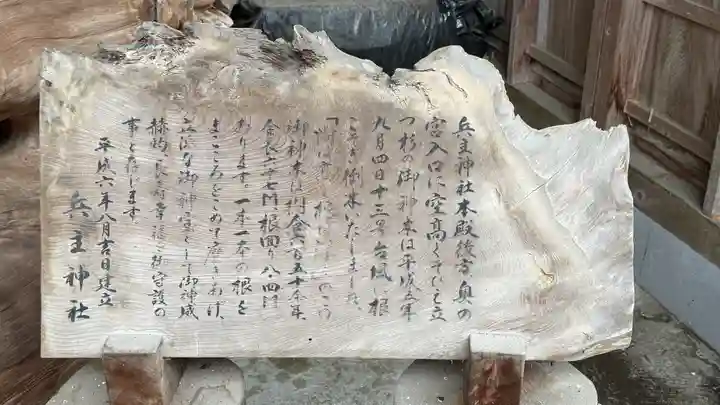 兵主神社本殿後方奥の
宮入口に空高くそびえ立
つ杉の御神木は平成五年
九月四日十三号台風に根
こそぎ倒木いたしました。
御神木は樹令六百五十余年、
全長二十七M根回り八、四M
あります。一本一本の根を
まごころをこめて磨きあげ、
立派な御神宝として御神威
赫灼、長寿幸福の社守護の
事と存じます
平成六年八月吉日建立
兵主神社